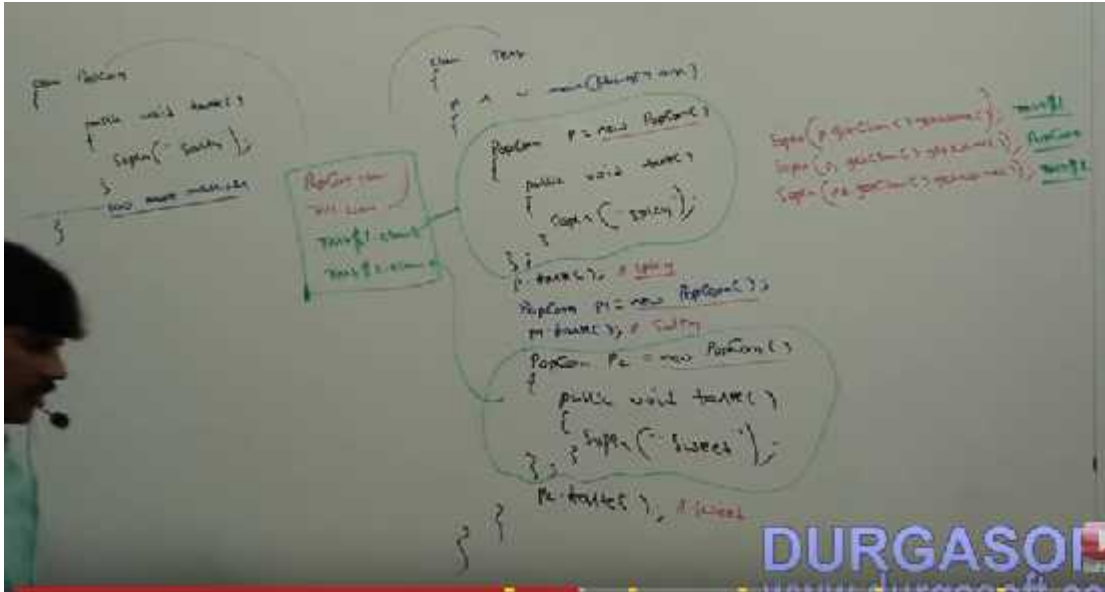 class PopCorn
{
public void taste()
{
Sopln("- Salty");
}
100 more methods
}
PopCorn.class
Test.class
Test$1.class
Test$2.class
class Test
{
p s v main(String[] args)
{
PopCorn p = new PopCorn()
{
public void taste()
{
Sopln("- spicy");
}
};
p.taste(); // spicy
PopCorn p1 = new PopCorn();
p1.taste(); // Salty
PopCorn p2 = new PopCorn()
{
public void taste()
{
Sopln("- Sweet");
}
};
p2.taste(); // Sweet
}
}
Sopln(p.getClass().getName()); Test$1
Sopln(p1.getClass().getName()); PopCorn
Sopln(p2.getClass().getName()); Test$2
DURGASOF